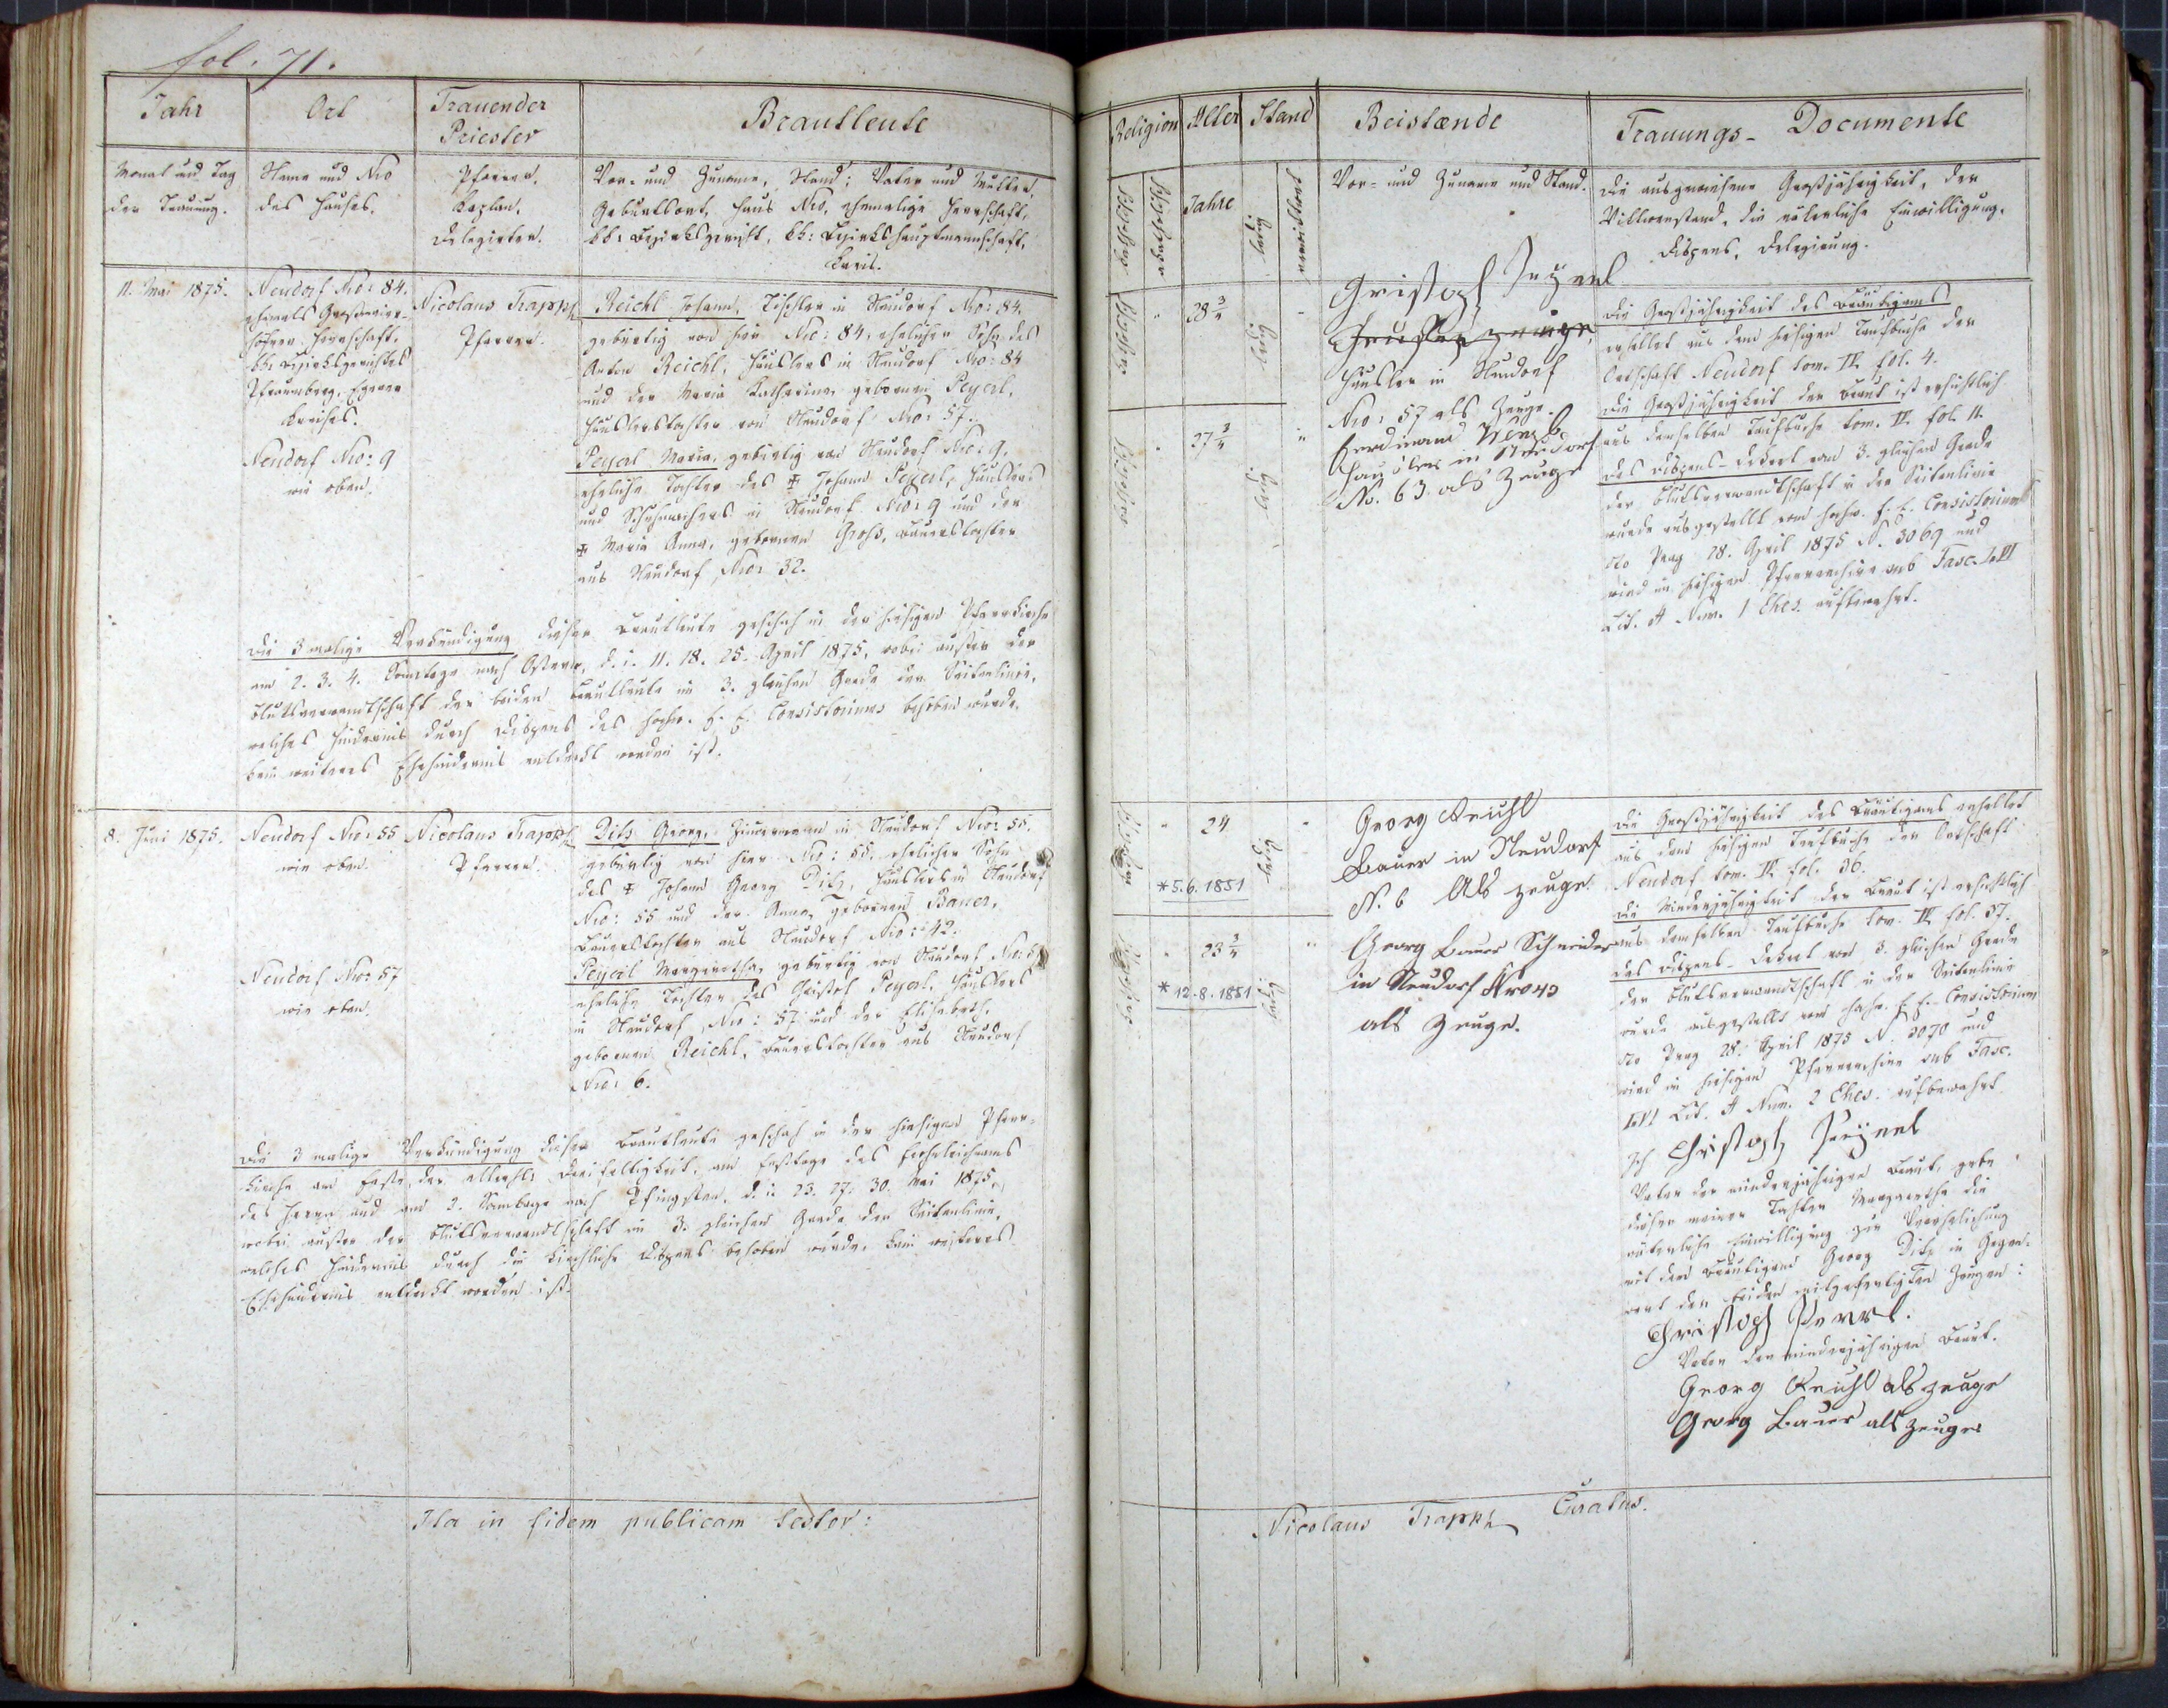 fol. 71.
Jahr
Ort
Trauender
Priester
Brautleute
Monat und Tag
der Trauung.
Name und Nro
des Hauses.
Pfarrer.
Kaplan.
Delegirter.
Vor- und Zuname, Stand; Vater und Mutter,
Geburtsort, Haus Nro, ehemalige Herrschaft,
kk: Bezirksgericht, kk: Bezirkshauptmannschaft,
Kreis.
11. Mai 1875.
Neudorf Nro: 84.
ehemals
Herrschaft,
kk: Bezirksgerichtes
Pfraumberg, Egerer
Kreises.
Neudorf Nro: 9
wie oben.
Nicolaus Trapph
Pfarrer.
Reichl Johann, Tischler in Neudorf Nro: 84.
gebürtig von hier Nro: 84, ehelicher Sohn des
Anton Reichl, Häuslers in Neudorf Nro: 84
und der Maria Katharina, gebornen Peyerl,
Häuslerstochter von Neudorf Nro: 57.
Peyerl Maria, gebürtig von Neudorf Nro: 9,
eheliche Tochter des ✠ Johann Peyerl, Häuslers
und Schuhmachers in Neudorf Nro: 9 und der
✠ Maria Anna, gebornen Grohs, Bauerstochter
aus Neudorf Nro: 32.
Die 3 malige Verkündigung dieser Brautleute geschah in der hiesigen Pfarrkirche
am 2. 3. 4. Sonntage nach Ostern, d. i. 11. 18. 25. April 1875, wobei außer der
Blutsverwandtschaft der beiden Brautleute im 3. gleichen Grade der Seitenlinie,
welches Hinderniß durch Dispens des hochw. f. e. Consistoriums behoben wurde,
kein weiteres Ehehinderniß entdeckt worden ist.
8. Juni 1875.
Neudorf Nro: 55
wie oben.
Neudorf Nro: 57
wie oben.
Nicolaus Trapph
Pfarrer.
Dilz Georg, Zimmermann in Neudorf Nro: 55.
gebürtig von hier Nro: 55, ehelicher Sohn
des ✠ Johann Georg Dilz, Häuslers in Neudorf
Nro: 55 und der Anna, gebornen Bauer,
Bauerstochter aus Neudorf Nro: 42.
Peyerl Margaretha, gebürtig von Neudorf Nro: 57
eheliche Tochter des Christof Peyerl, Häuslers
in Neudorf Nro: 57 und der Elisabeth,
gebornen Reichl, Bauerstochter aus Neudorf
Nro: 6.
Die 3 malige Verkündigung dieser Brautleute geschah in der hiesigen Pfarr-
kirche am Feste der allerhl. Dreifaltigkeit, am Festtage des Frohnleichnams
des Herrn und am 2. Sonntage nach Pfingsten, d. i. 23. 27. 30. Mai 1875,
wobei außer der Blutsverwandtschaft im 3. gleichen Grade der Seitenlinie,
welches Hinderniß durch die kirchliche Dispens behoben wurde, kein weiteres
Ehehinderniß entdeckt worden ist.
Ita in fidem publicam testor:
Religion
Alter
Stand
Beistænde
Trauungs-Documente
Katholisch
Jahre
ledig
verwittwet
Vor- und Zuname und Stand.
Die ausgewiesene Großjährigkeit, der
Wittwerstand, die väterliche Einwilligung,
Dispens, Delegirung.
Katholisch
"
28 3/4
ledig
Katholisch
"
27 3/4
ledig
"
Häusler in Neudorf
Nro: 57 als Zeuge.
Ferdinand Wenzl
Häusler in Neudorf
No. 63. als Zeuge
Die Großjährigkeit des Bräutigams
erhellet aus dem hiesigen Taufbuche der
Ortschaft Neudorf tom. IV. fol. 4.
Die Großjährigkeit der Braut ist ersichtlich
aus demselben Taufbuche tom. IV. fol. 11.
Das Dispens-Dekret vom 3. gleichen Grade
der Blutsverwandtschaft in der Seitenlinie
wurde ausgestellt vom hochw. f. e. Consistorium
dto Prag 28. April 1875 N. 3069 und
wird im hiesigen Pfarrarchive sub Fasc. LVI
Lit. A Num. 1 Ehes. aufbewahrt.
Katholisch
"
24
*5.6.1851
ledig
Katholisch
"
23 3/4
*12.8.1851
ledig
"
Georg Reichl
Bauer in Neudorf
N. 6 Als Zeuge.
Georg Bauer Schneider
in Neudorf Nro 43
als Zeuge.
Die Großjährigkeit des Bräutigams erhellet
aus dem hiesigen Taufbuche der Ortschaft
Neudorf tom. IV. fol. 36.
Die Minderjährigkeit der Braut ist ersichtlich
aus demselben Taufbuche tom. IV. fol. 37.
Das Dispens-Dekret vom 3. gleichen Grade
der Blutsverwandtschaft in der Seitenlinie
wurde ausgestellt vom hochw. f. e. Consistorium
dto Prag 28. April 1875 N. 3070 und
wird im hiesigen Pfarrarchive sub Fasc.
LVI Lit. A Num. 2 Ehes. aufbewahrt.
Ich Christoph
Vater der minderjährigen Braut, gebe
dieser meiner Tochter Margaretha die
väterliche Einwilligung zur Verehelichung
mit dem Bräutigam Georg Dilz in Gegen-
wart der beiden mitgefertigten Zeugen:
Christoph
Vater der minderjährigen Braut.
Georg Reichl als Zeuge
Georg Bauer als Zeuge
Nicolaus Trapph Curatus.